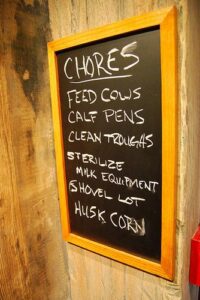 CHORES
FEED COWS
CALF PENS
CLEAN TROUGHS
STERILIZE
MILK EQUIPMENT
SHOVEL LOT
HUSK CORN